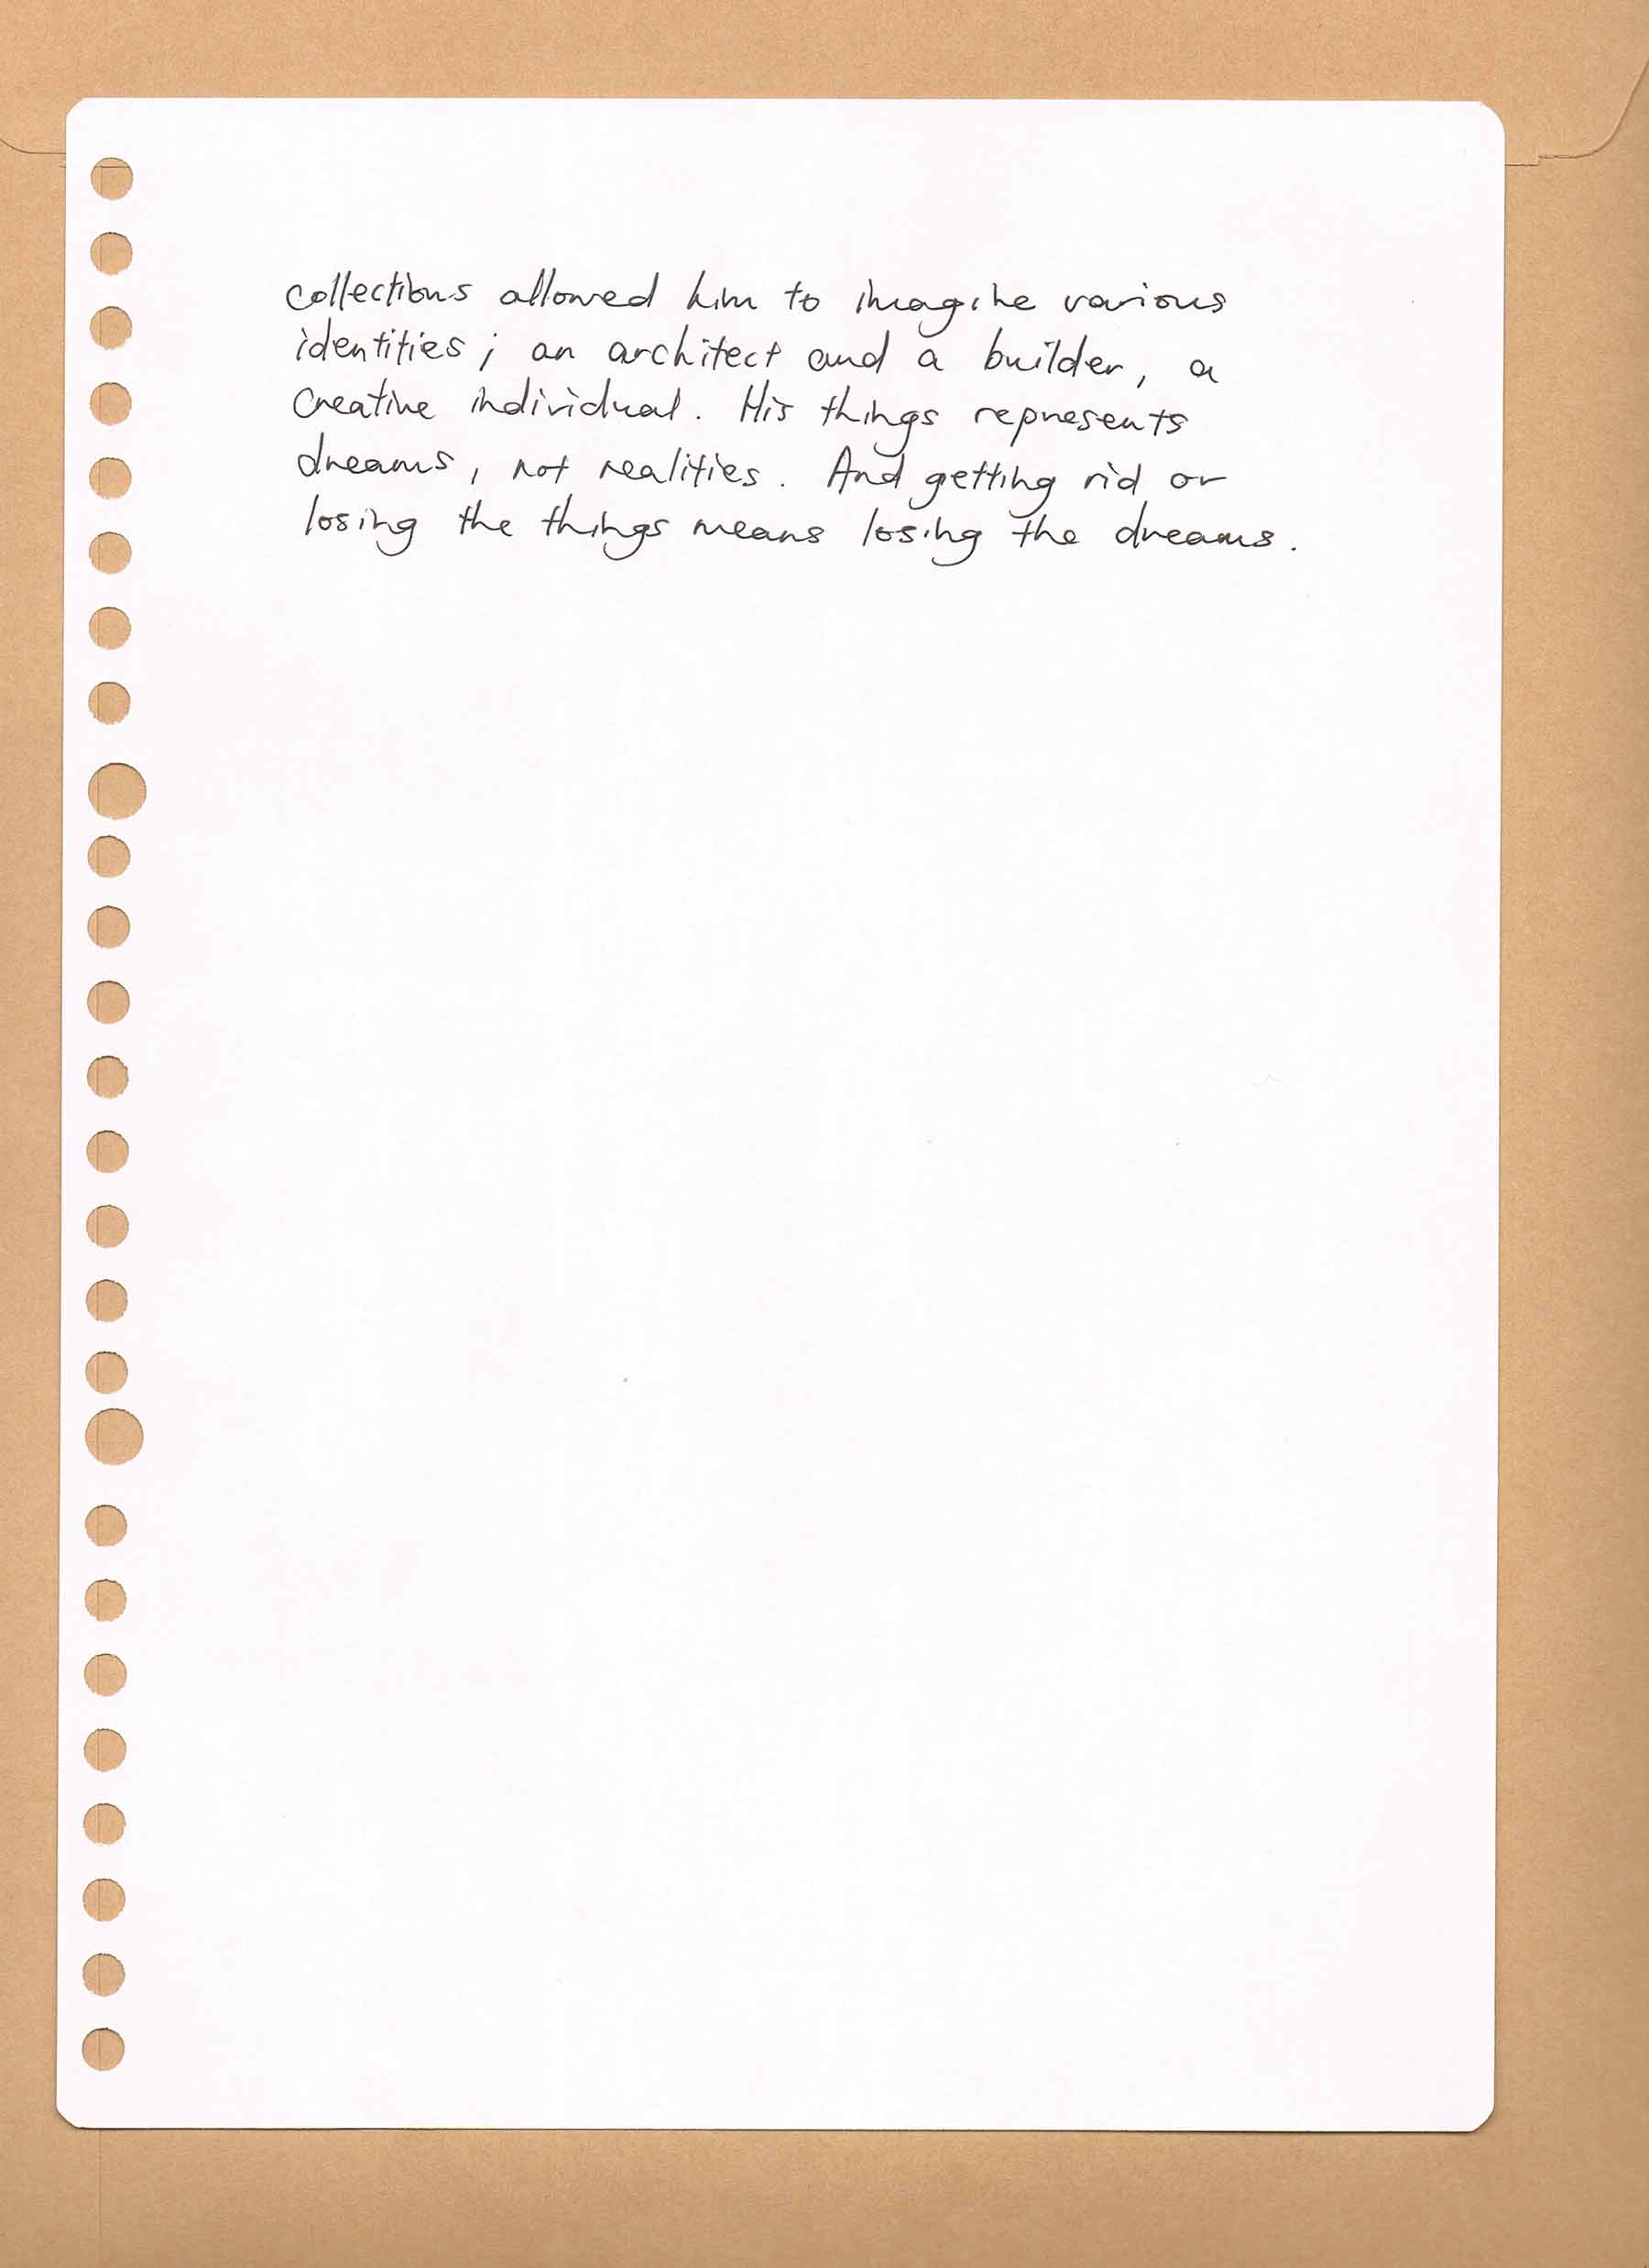 collections allowed him to imagine various
identities; an architect and a builder, a
creative individual. His things represents
dreams, not realities. And getting rid or
losing the things means losing the dreams.